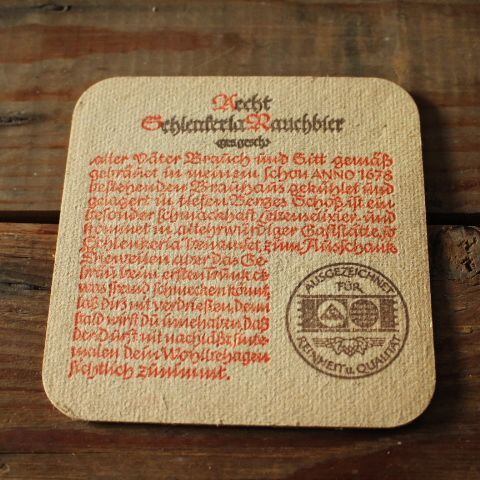 Aecht
Schlenkerla Rauchbier
ges gesch
alter Väter Brauch und Sitt gemäß
gebräut in meinem schon ANNO 1678
bestehenden Brauhaus gekühlet und
gelagert in tiefen Berges Schoß ist ein
besonder schmackhaft Lebenselixier und
kommet in altehrwürdiger Gaststätte, so
Schlenkerla benamset, zum Ausschank
Dieweilen aber Das Ge-
bräu beim ersten Trunk et-
was fremd schmecken könnt,
laß Dirs nit verdrießen, denn
bald wirst Du innehaben, daß
der Durst nit nachläßt, sinte-
malen dein Wohlbehagen
sichtlich zunimmt.
AUSGEZEICHNET
FÜR
REINHEIT u. QUALITÄT